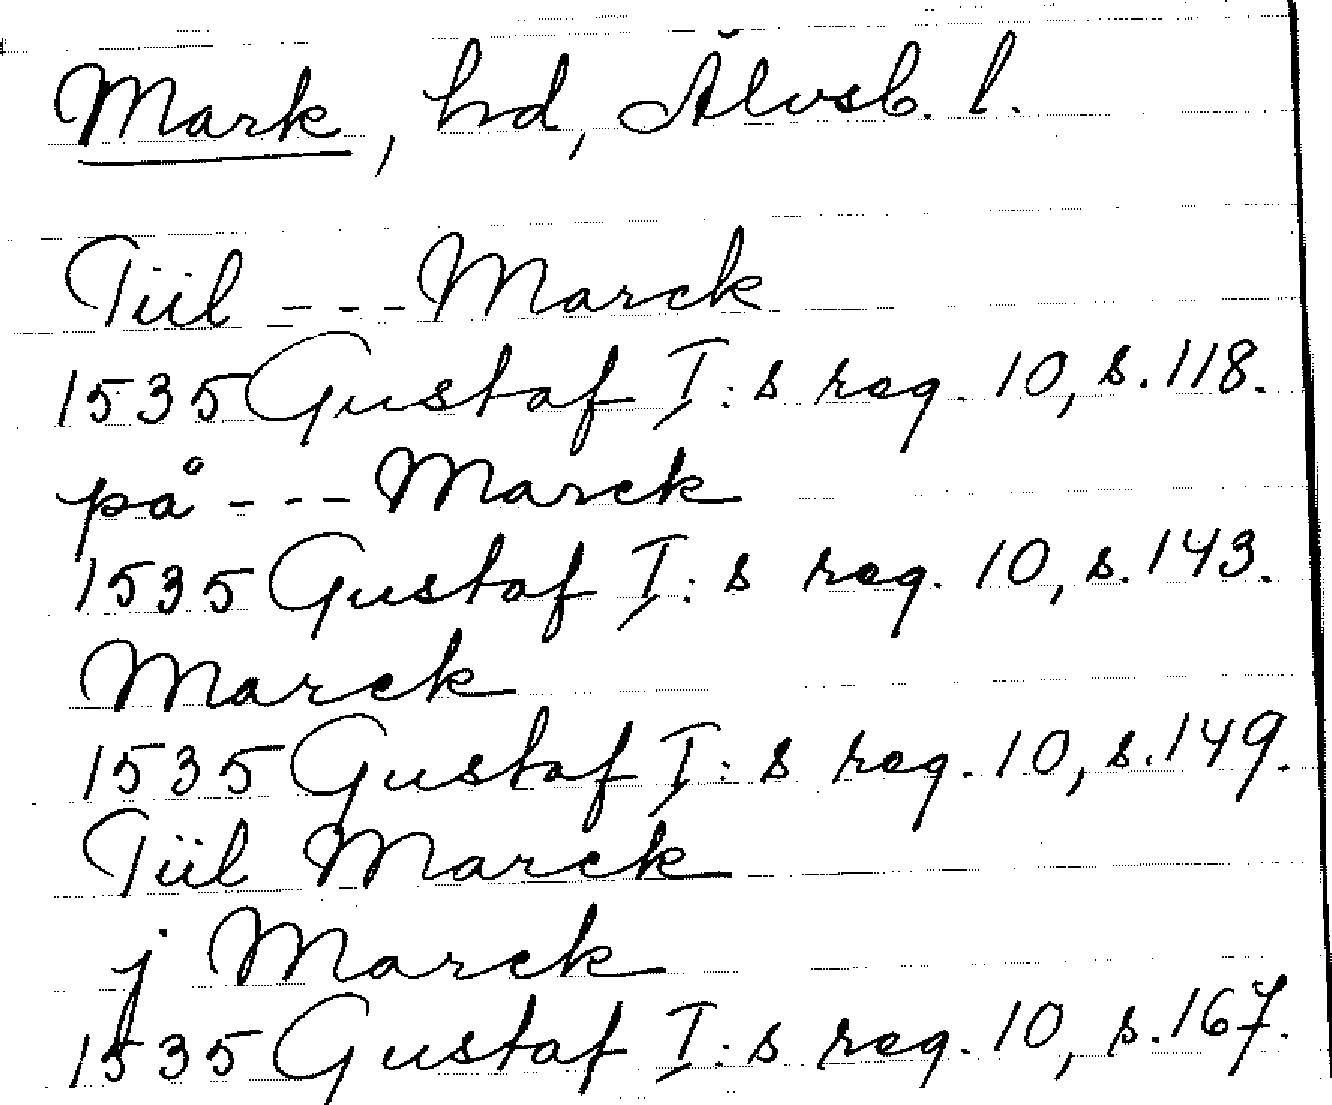 Mark, hd, Älvsb. l.
Tiil --- Marck
1535 Gustaf I:s reg. 10, s. 118.
på --- Marck
1535 Gustaf I:s reg. 10, s. 143.
Marck
1535 Gustaf I:s reg. 10, s. 149.
Tiil Marck
j Marck
1535 Gustaf I:s reg. 10, s. 167.